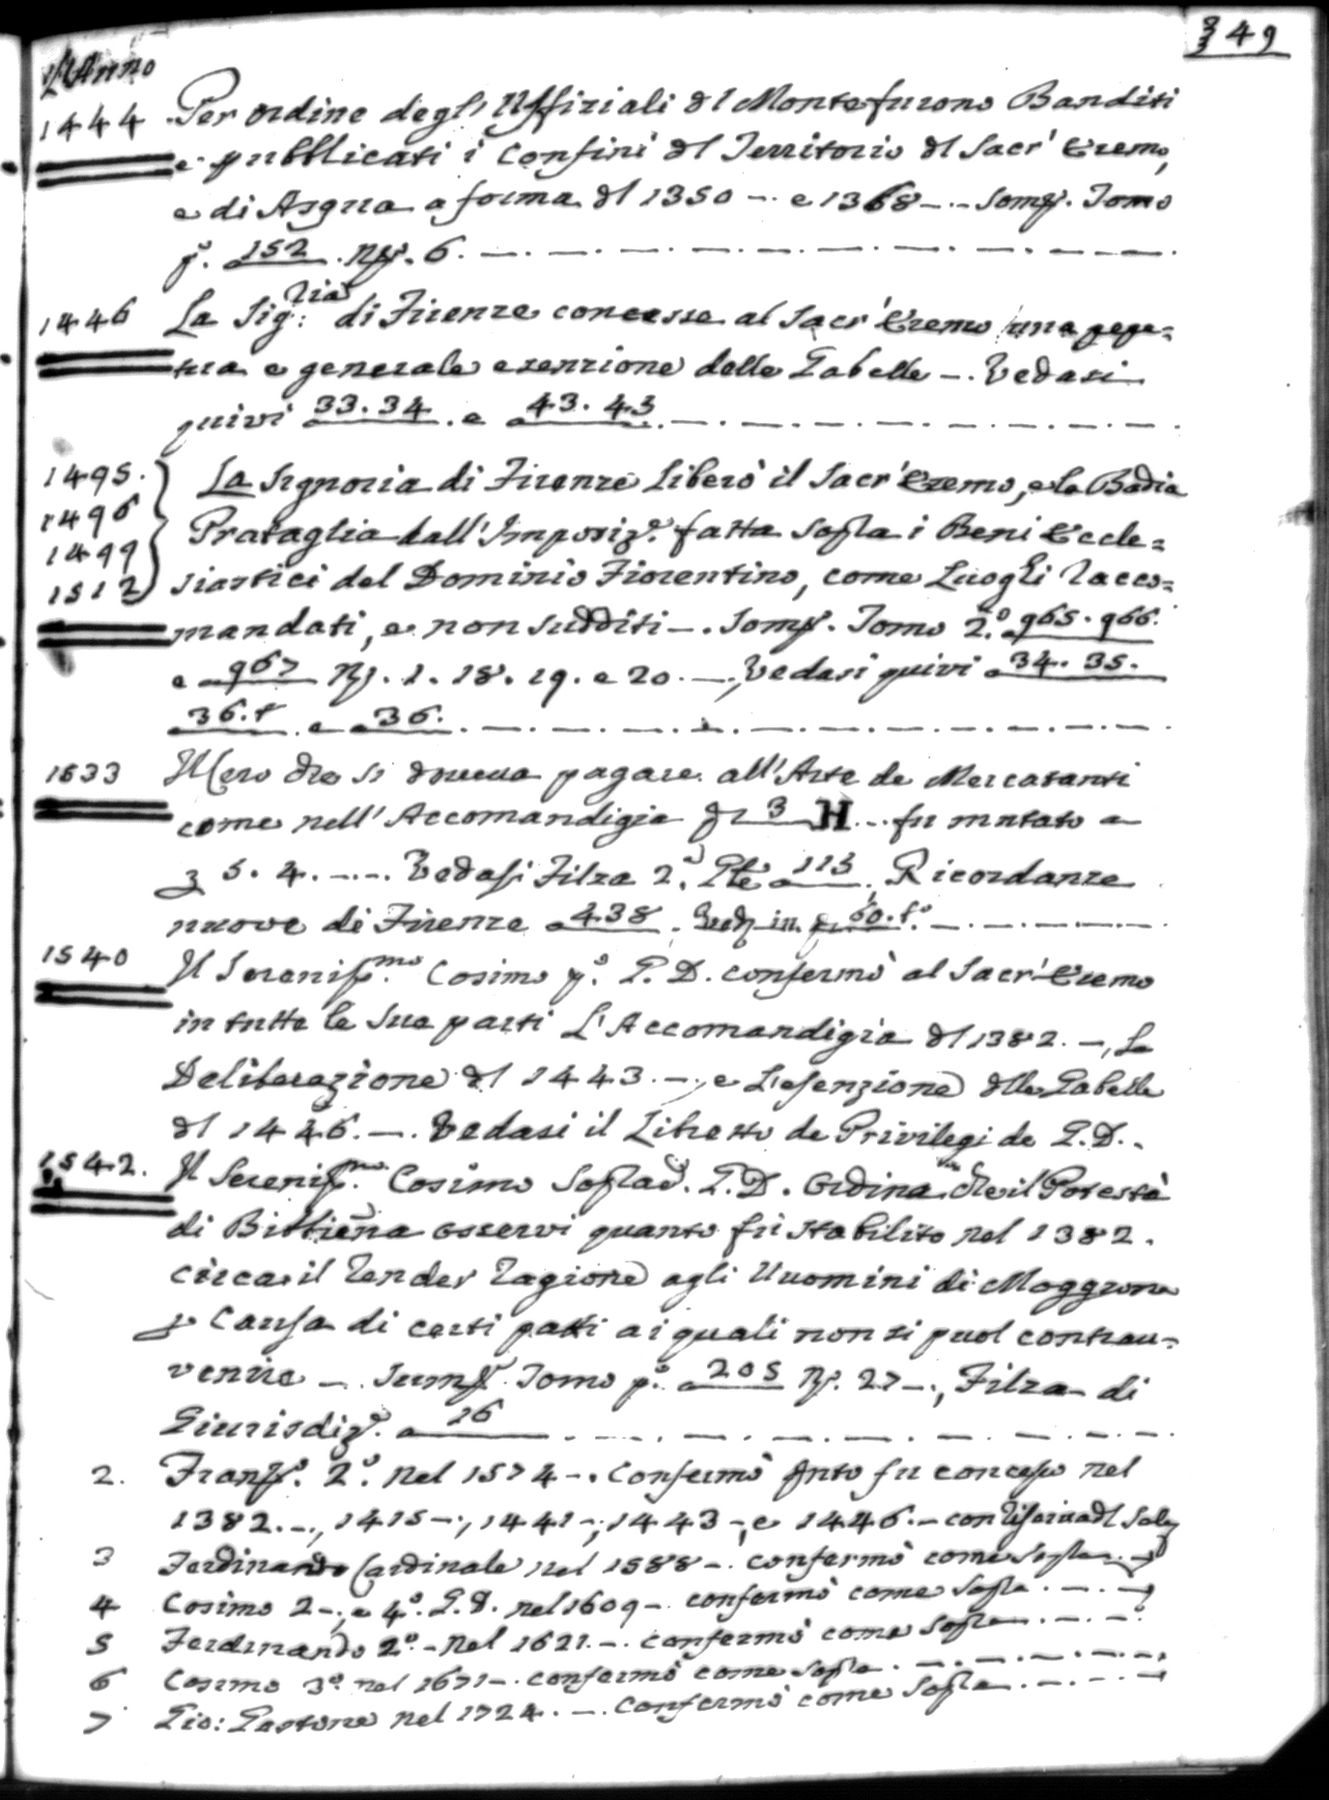 349
L'Anno
1444 Per ordine degl' Uffiziali dl Monte furono Banditi
e pubblicati i Confini dl Territorio dl Sacr' Eremo,
e di Asqua a forma dl 1350 –. e 1368 –.– Somm. Tomo
p.° 152. N. 6.
1446 La Sig:ria di Firenze concesse al Sacr' Eremo una perpe=
tua e generale esenzione delle Gabelle –. Vedasi
quivi 33. 34. e 43. 43.
1495. La Signoria di Firenze Liberò il Sacr' Eremo, e la Badia
1496 Prataglia dall' Imposiz.e fatta Sopra i Beni Eccle=
1499 siastici del Dominio Fiorentino, come Luoghi racco=
1512 mandati, e non Sudditi –. Somm. Tomo 2.° a 965. 966.
e a 967 N. 1. 18. 19. e 20. –., Vedasi quivi a 34. 35.
36. t e a 36.
1533 Il Cero che si doveva pagare all' Arte de Mercatanti
come nell' Accomandigia di 3 H ... fu mutato a
5. 4. –.–. Vedasi Filza 2.a Pte a 113. Ricordanze
nuove di Firenze a 438. in 60. t.°
1540 Il Sereniss.mo Cosimo p.° G. D. confermò al Sacr' Eremo
in tutte le Sue parti L' Accomandigia dl 1382. –, La
Deliberazione dl 1443. –, e L'esenzione dlle Gabelle
dl 1446. –. Vedasi il Libretto de Privilegi de G. D.
1542. Il Sereniss.mo Cosimo Soprad.° G. D. Ordina che il Potestà
di Bibbiena osservi quanto fù stabilito nel 1382.
circa il render ragione agli Uuomini di Moggiona
p Causa di certi patti a i quali non si puol contrau=
venire –. Somm. Tomo p.° a 205 N. 27 –., Filza di
Giurisdiz.e a 16
2. Franc.° 2.° Nel 1574 –. Confermò qnto fu concesso nel
1382. –., 1415 –., 1441 –., 1443 –, e 1446. – con riserva dl Sale
3 Ferdinando Cardinale nel 1588 –. confermò come Sopra
4 Cosimo 2 –., e 4.° G. D. nel 1609 –. confermò come Sopra
5 Ferdinando 2.° – Nel 1621. –. confermò come Sopra
6 Cosimo 3.° nel 1671 –. confermò come Sopra
7 Gio: Gastone Nel 1724. –. Confermò come Sopra